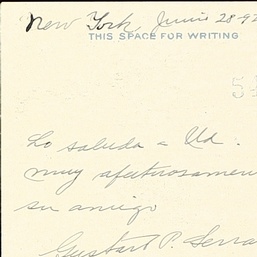 New York, Junio 28-92
THIS SPACE FOR WRITING
54
Lo saluda a Ud.
muy afectuosamen
su amigo
Gustavo P. Serra